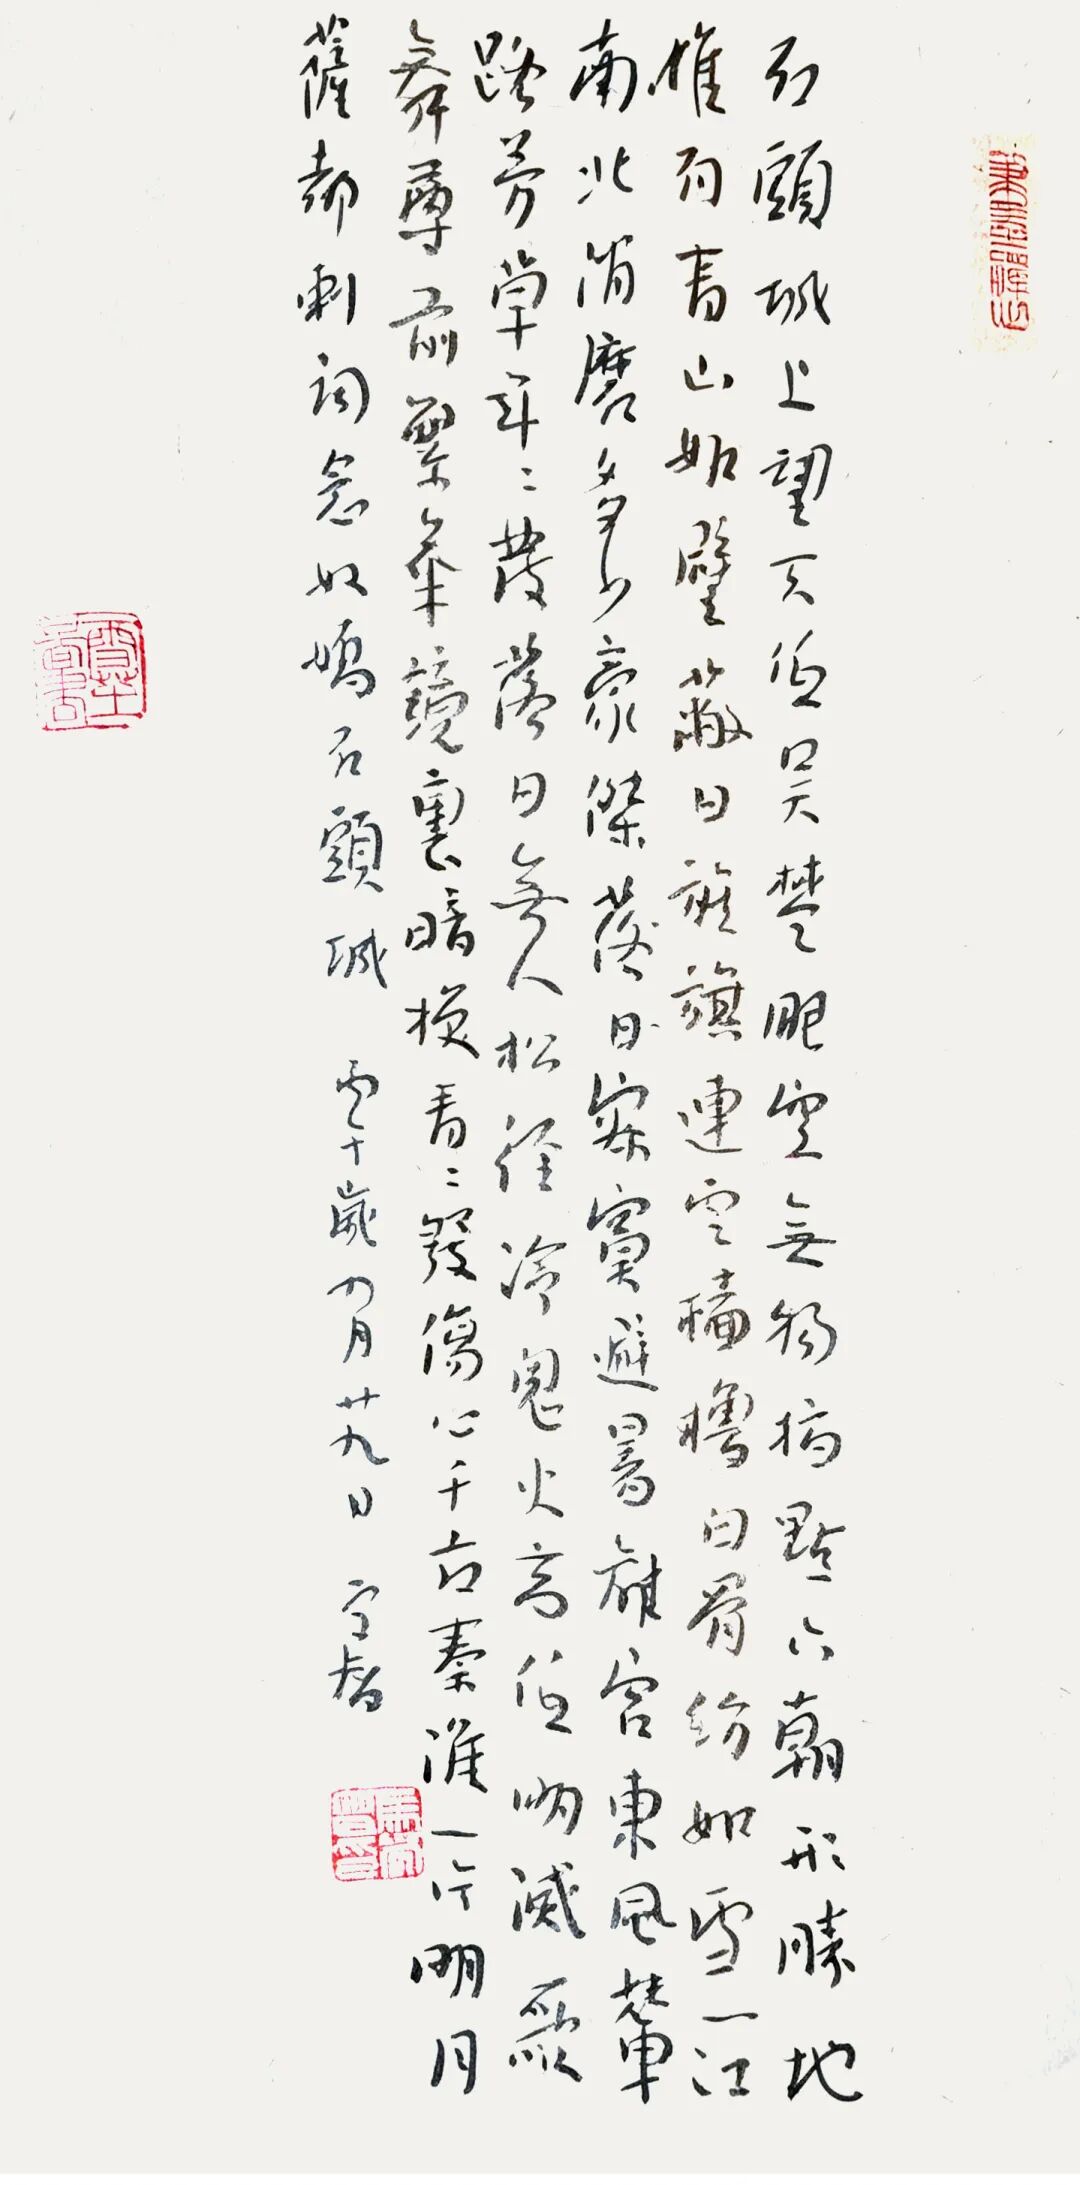 石頭城上望天低吳楚眼空無物指點六朝形勝地
惟有青山如壁蔽日旌旗連雲檣櫓白骨紛如雪一江
南北消磨多少豪傑落日寂寞避暑離宮東風輦
路芳草年〻發落日無人松徑冷鬼火高低明滅歌
舞尊前繁華鏡裏暗換青〻髮傷心千古秦淮一片明月
薩都剌詞念奴嬌石頭城
十歲四月廿九日